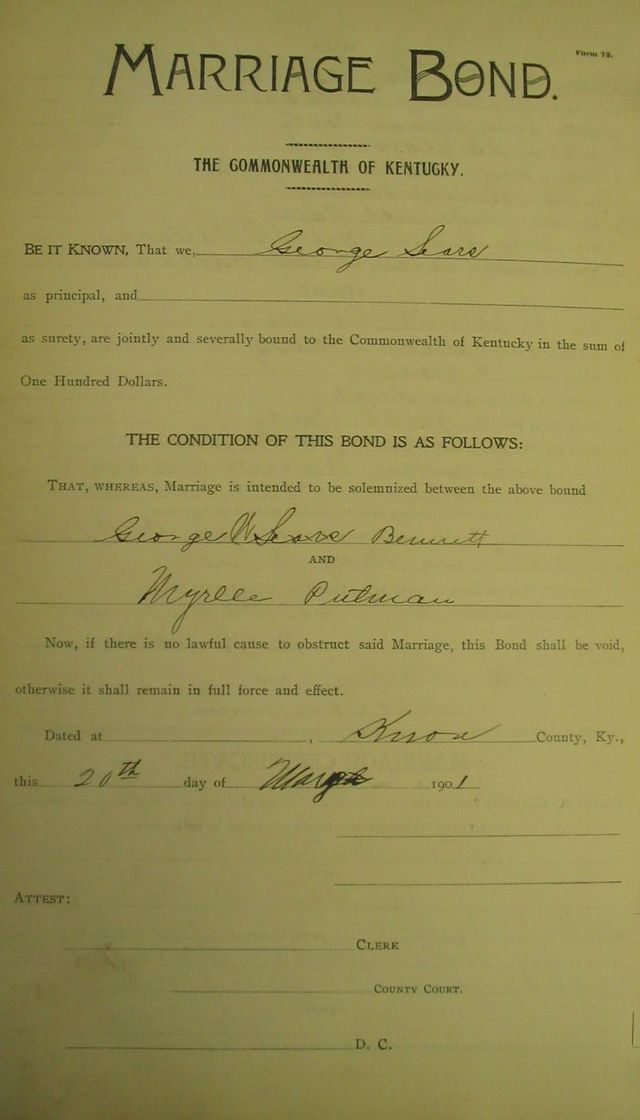 Form 73.
MARRIAGE BOND.
THE COMMONWEALTH OF KENTUCKY.
BE IT KNOWN, That we, George Sears
as principal, and
as surety, are jointly and severally bound to the Commonwealth of Kentucky in the sum of
One Hundred Dollars.
THE CONDITION OF THIS BOND IS AS FOLLOWS:
THAT, WHEREAS, Marriage is intended to be solemnized between the above bound
George W Sears Bennett
AND
Putman
Now, if there is no lawful cause to obstruct said Marriage, this Bond shall be void,
otherwise it shall remain in full force and effect.
Dated at , Knox County, Ky.,
this 20th day of 1901
ATTEST:
CLERK
COUNTY COURT.
D. C.